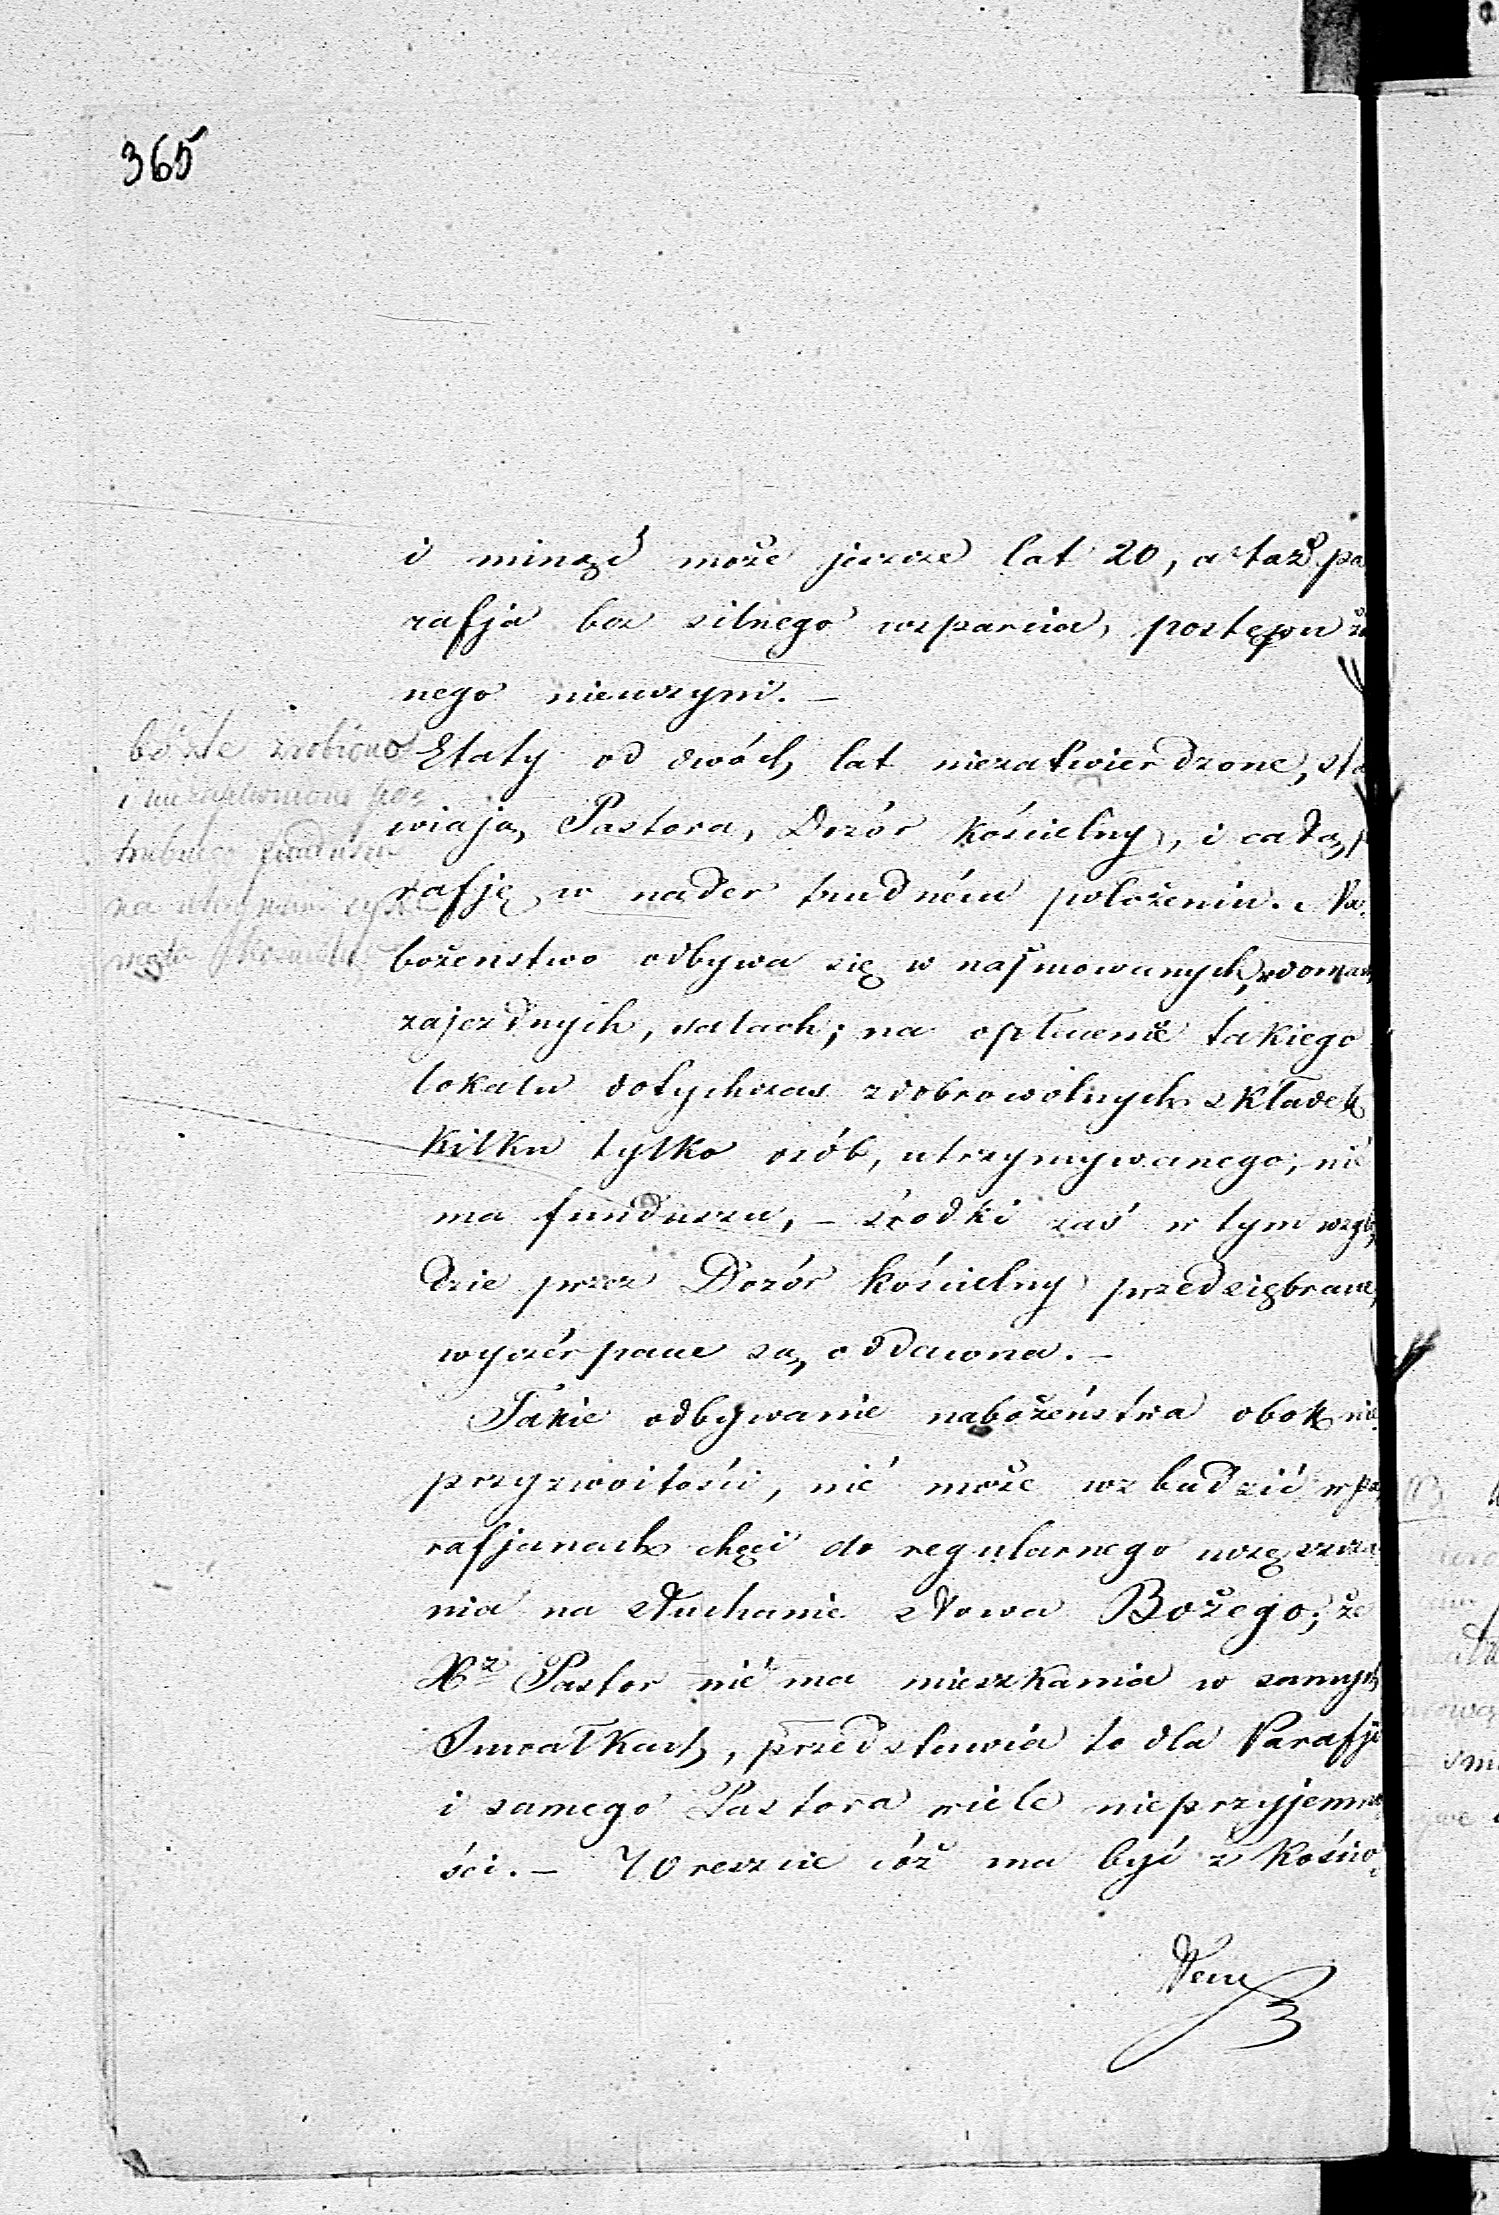 365
i minąć może jeszcze lat 20, a taż pa
rafja bez silnego wsparcia, postępu ża
nego nieuczyni. –
Etaty od dwóch lat niezatwierdzone, sta
wiają Pastora, Dozór kościelny, i całą p
rafję w nader trudném położeniu. Na
bożenstwo odbywa się w najmowanych, w domach
zajezdnych, salach; na opłacenie takiego
lokalu dotychczas z dobrowolnych składek
kilku tylko osób, utrzymywanego, nié
ma funduszu, – środki zaś w tym wzglę
dzie przez Dozór kościelny przedsięбrane,
wyczérpane są oddawna. –
Takie odbywanie nabożeństwa obok nie
przyzwoitości, nié może wzbudzić w pa
rafjanach chęci do regularnego uczęszcza
nia na słuchanie słowa Bożego; że
Xz Pastor nié ma mieszkania w samych
Suwałkach, przedstawia to dla Parafji
i samego Pastora wiele nieprzyjemno
ści. – Wreszcie cóż ma być z Kościo
łem
będzie zrobiono
i
fundusz
na